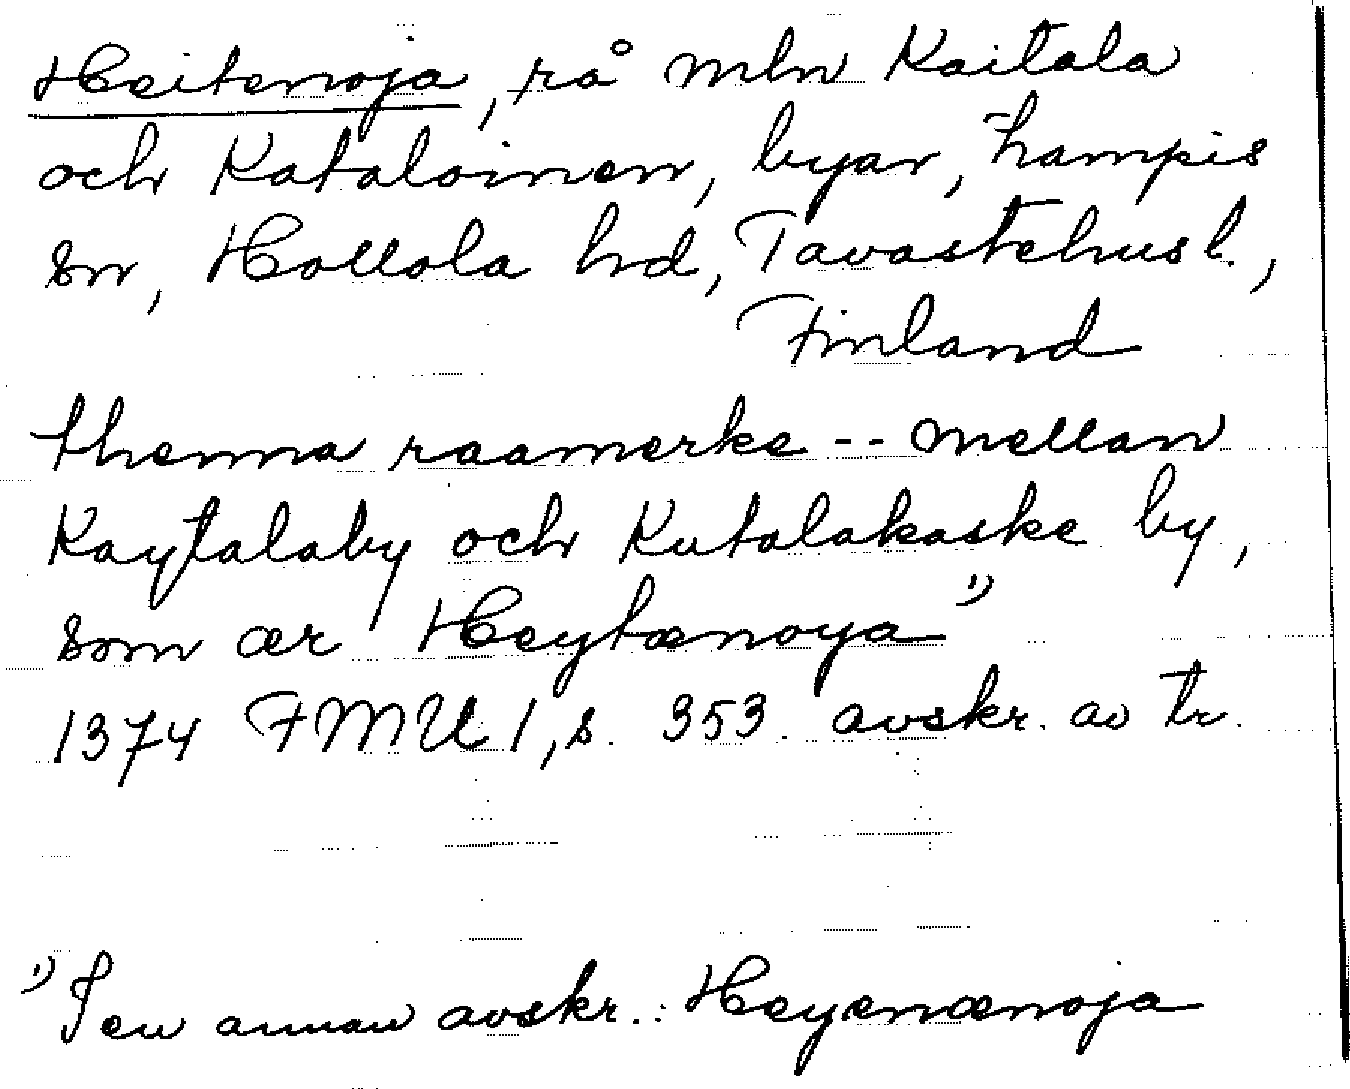 Heitenoja, rå mln Kaitala
och Kataloinen, byar, Lampis
sn, Hollola hd, Tavastehus l.,
Finland
thenna raamerke -- mellan
Kaytalaby och Kutalakaske by,
som ær Heytænoya 1)
1374 FMU 1, s. 353. avskr. av tr.
1) I en annan avskr.: Heyenænoja